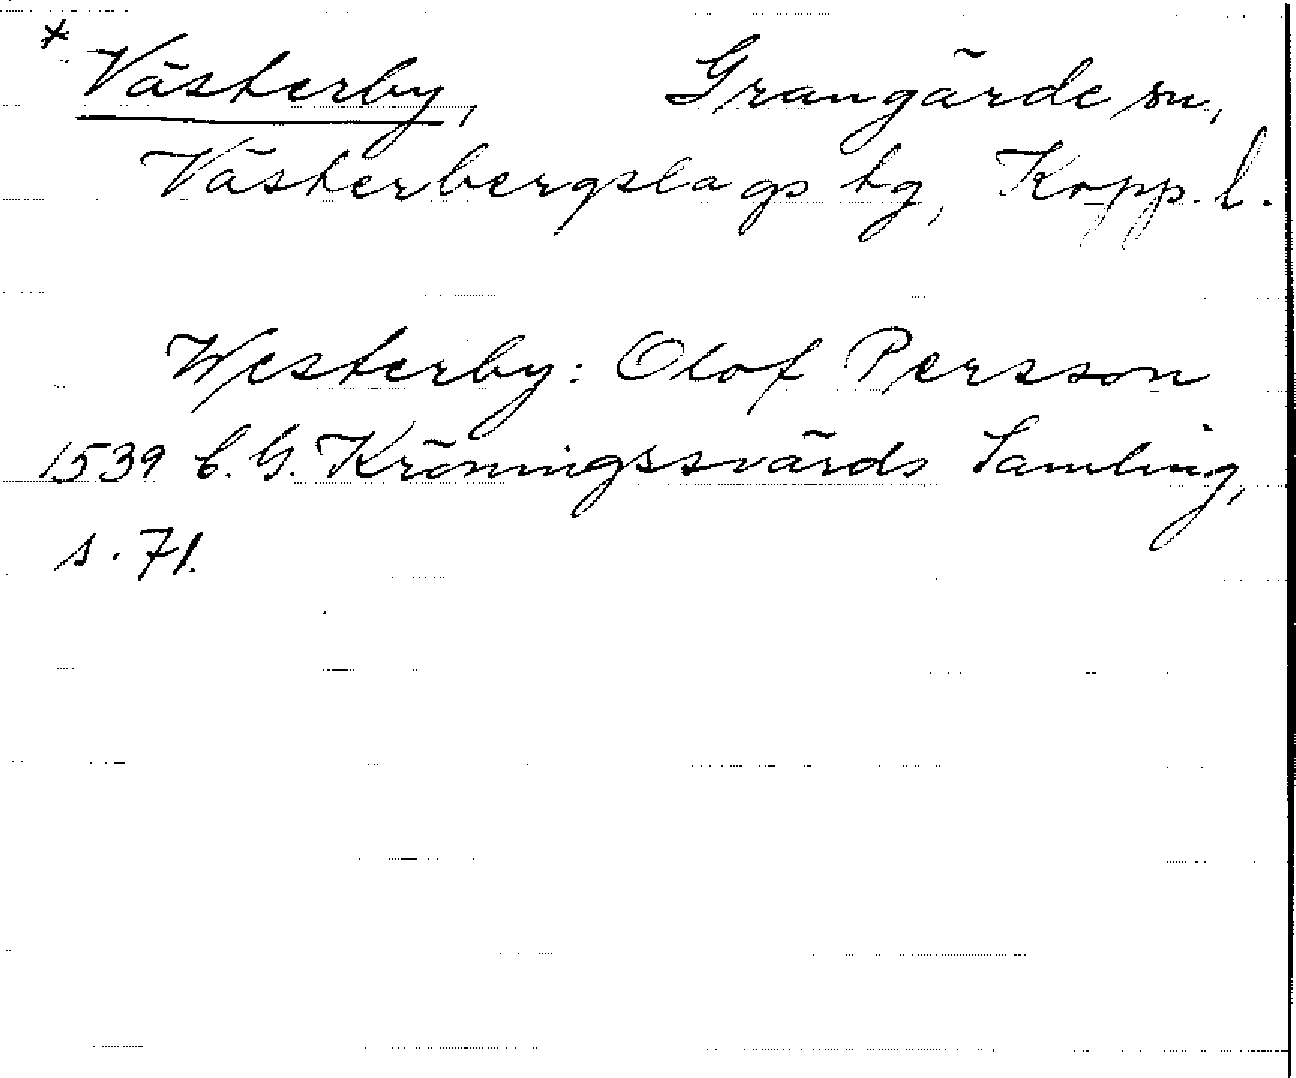 * Västerby, Grangärde sn,
Västerbergslags tg, Kopp. l.
Westerby: Olof Persson
1539 C. G. Kröningssvärds Samling,
s. 71.